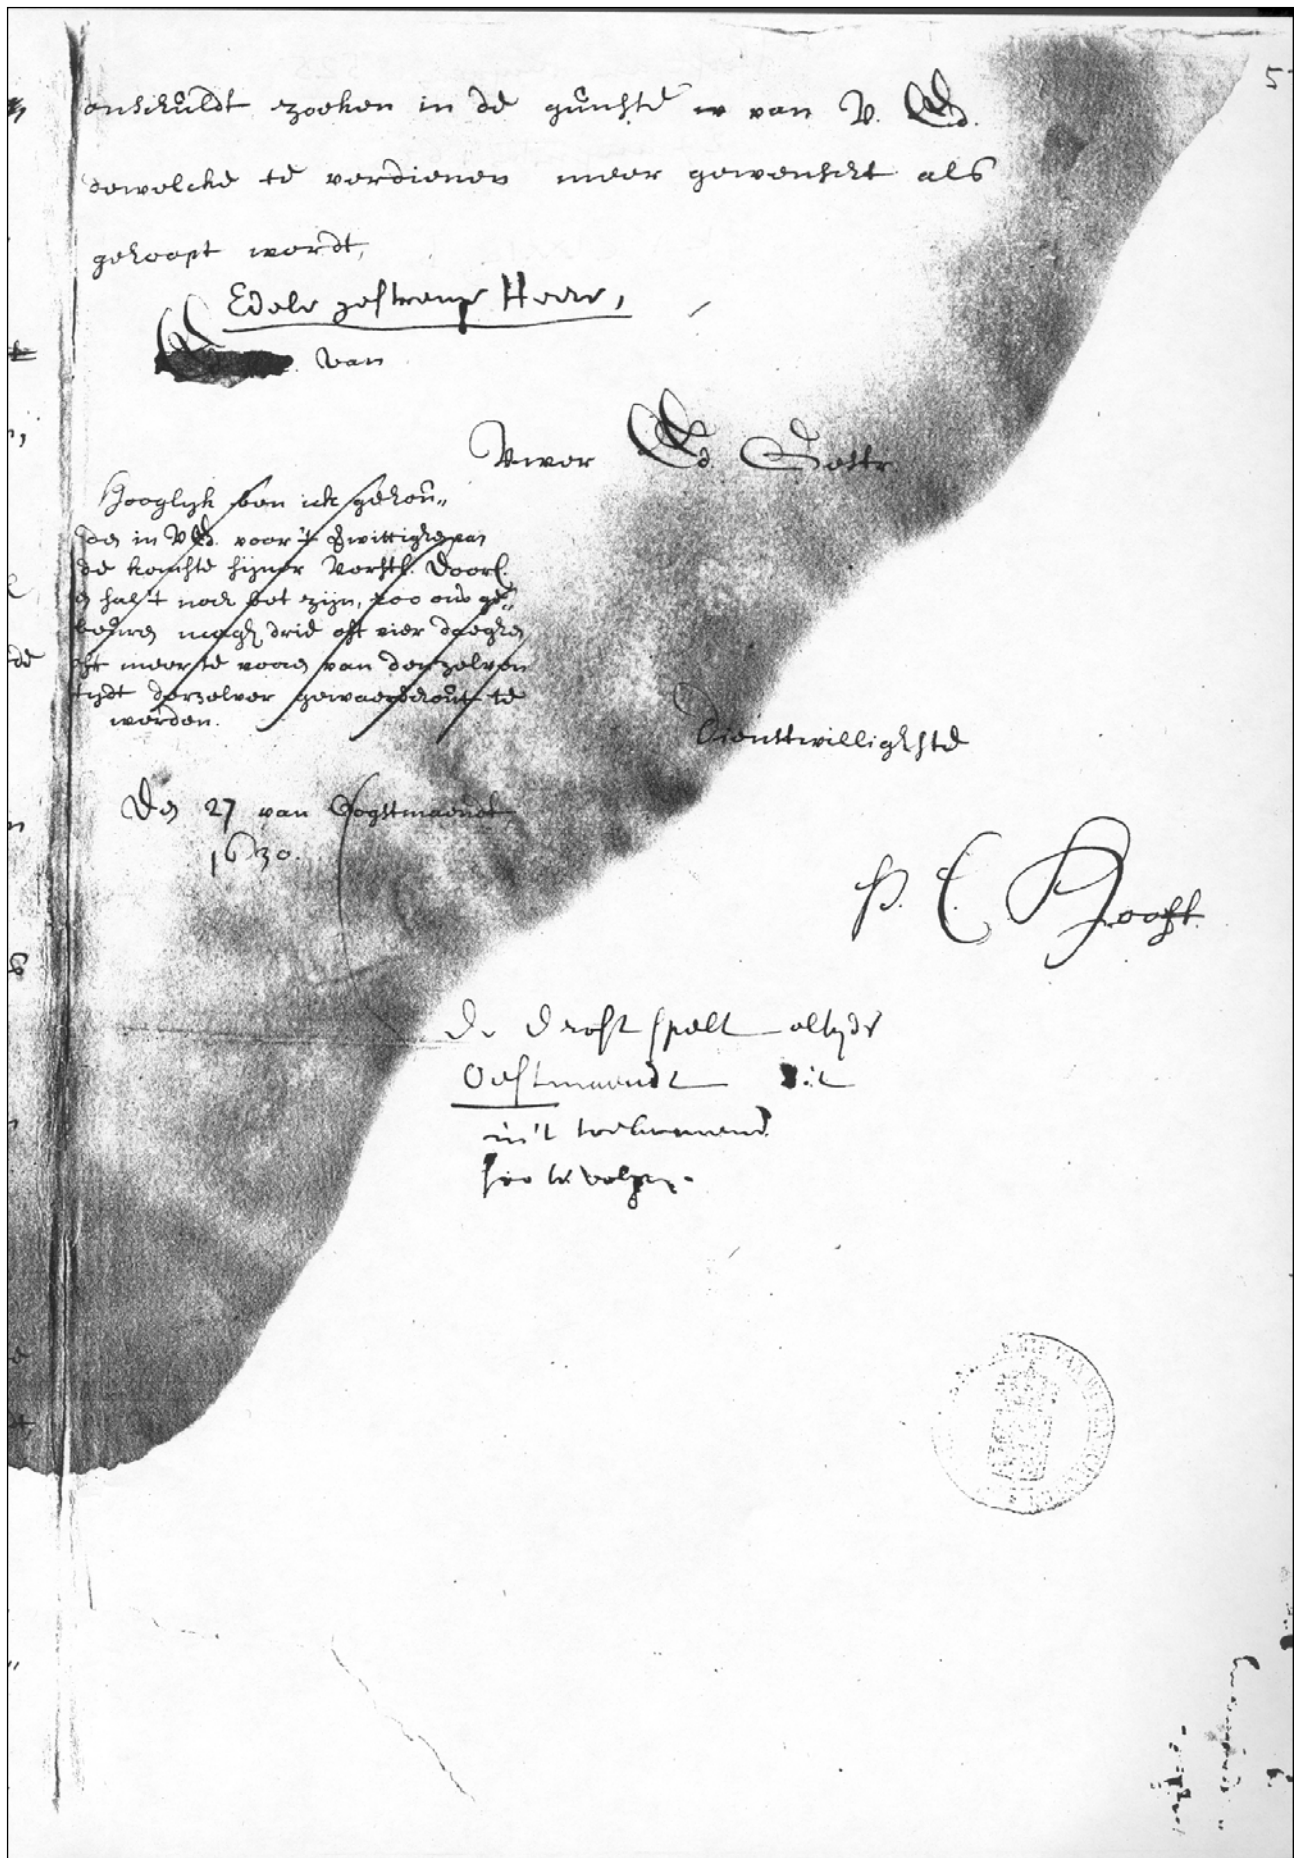 onschuldt zoeken in de gunste van V. Ed.
dewelcke te verdienen meer gewenscht als
gehoopt wordt,
Edele gestrenge Heer,
van
Uwer Ed. Gestr.
Hooglijk ben ick gehou-
den in V Ed. voor 't verwittighen van
de komste sijner Vorstl. Doorl.
en sal 't noch bet zijn, zoo ons ge-
beuren magh drie oft vier daeghen
oft meer te vooren van den zelven
tijdt derzelver gewaerschout te
worden.
Dienstwillighste
Den 27 van Oogstmaendt
1630.
P. C. Hooft.
De Drost spelt altyds
Oestmaendt dit
in 't toekomend
soo te volgen.